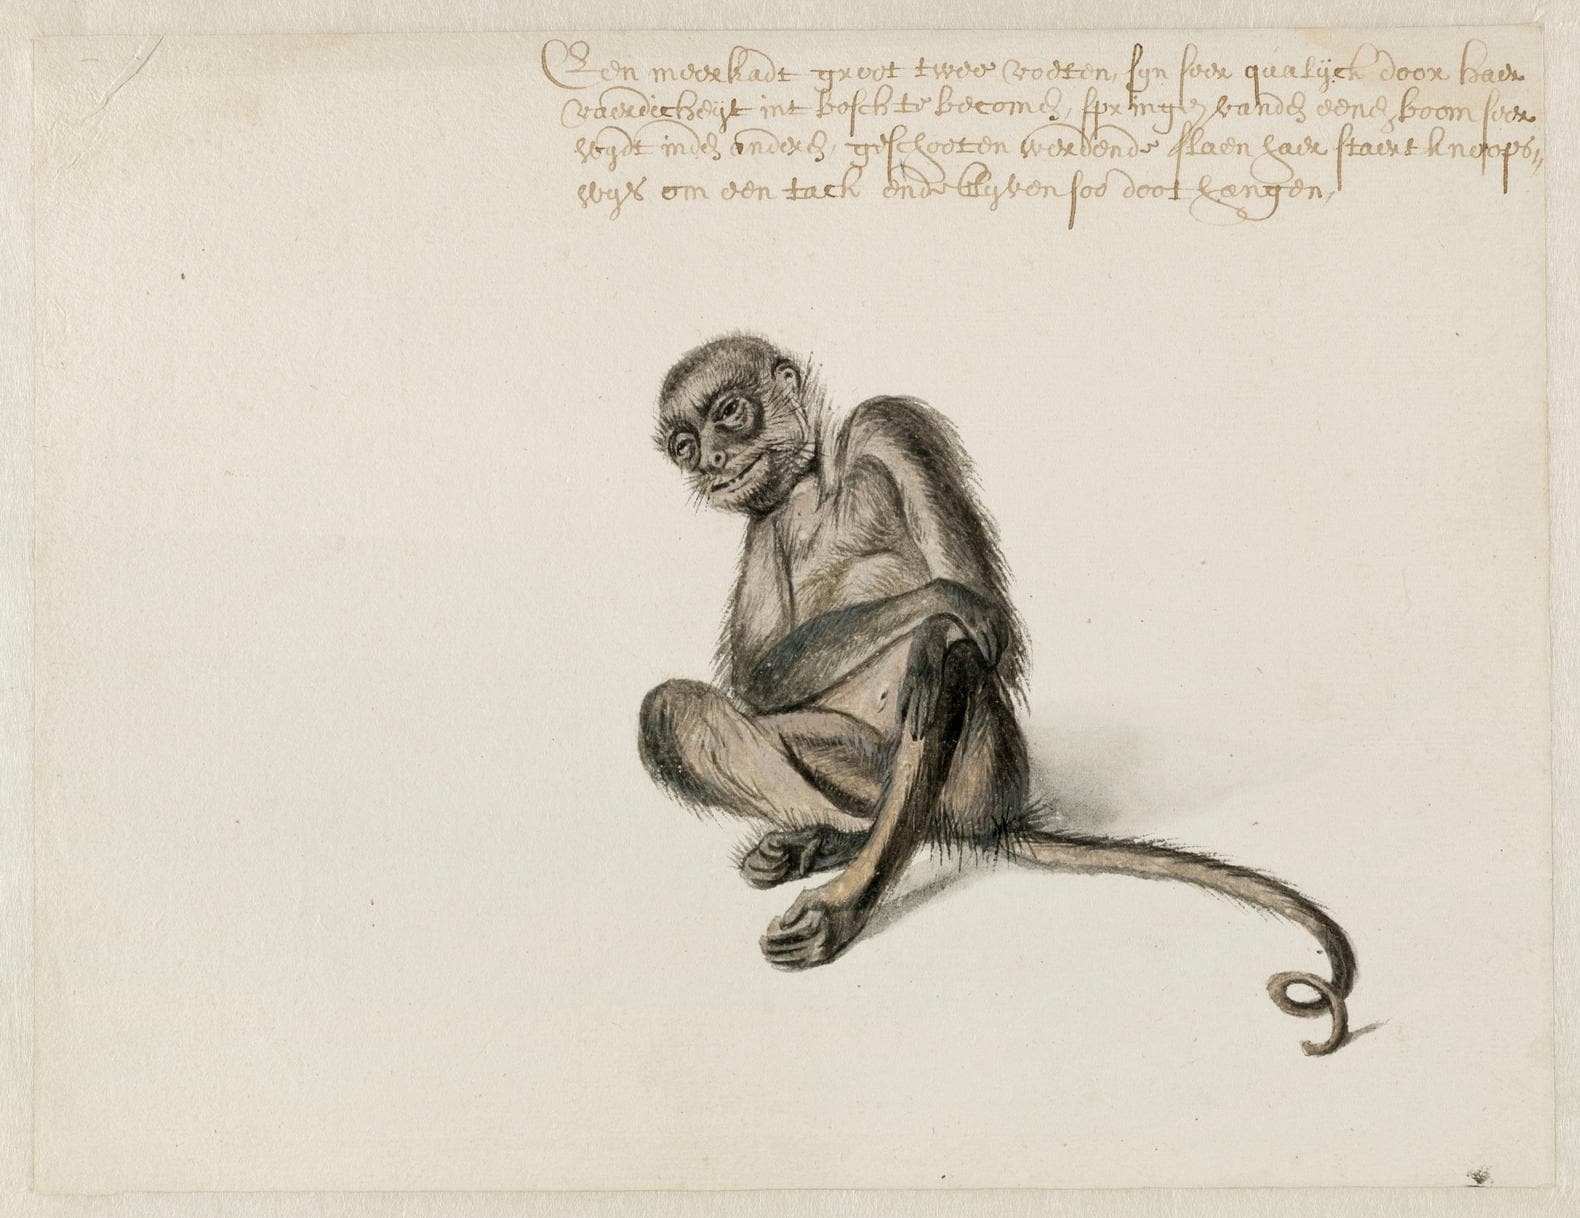 Een meerkadt groot twee voeten, syn seer qualijck door haer
vaerdicheyt int bosch te becomen, springen vanden eenen boom seer
wydt inden anderen, geschooten werdende slaen haer staert knoops„
wys om een tack ende blyven soo doot hangen,